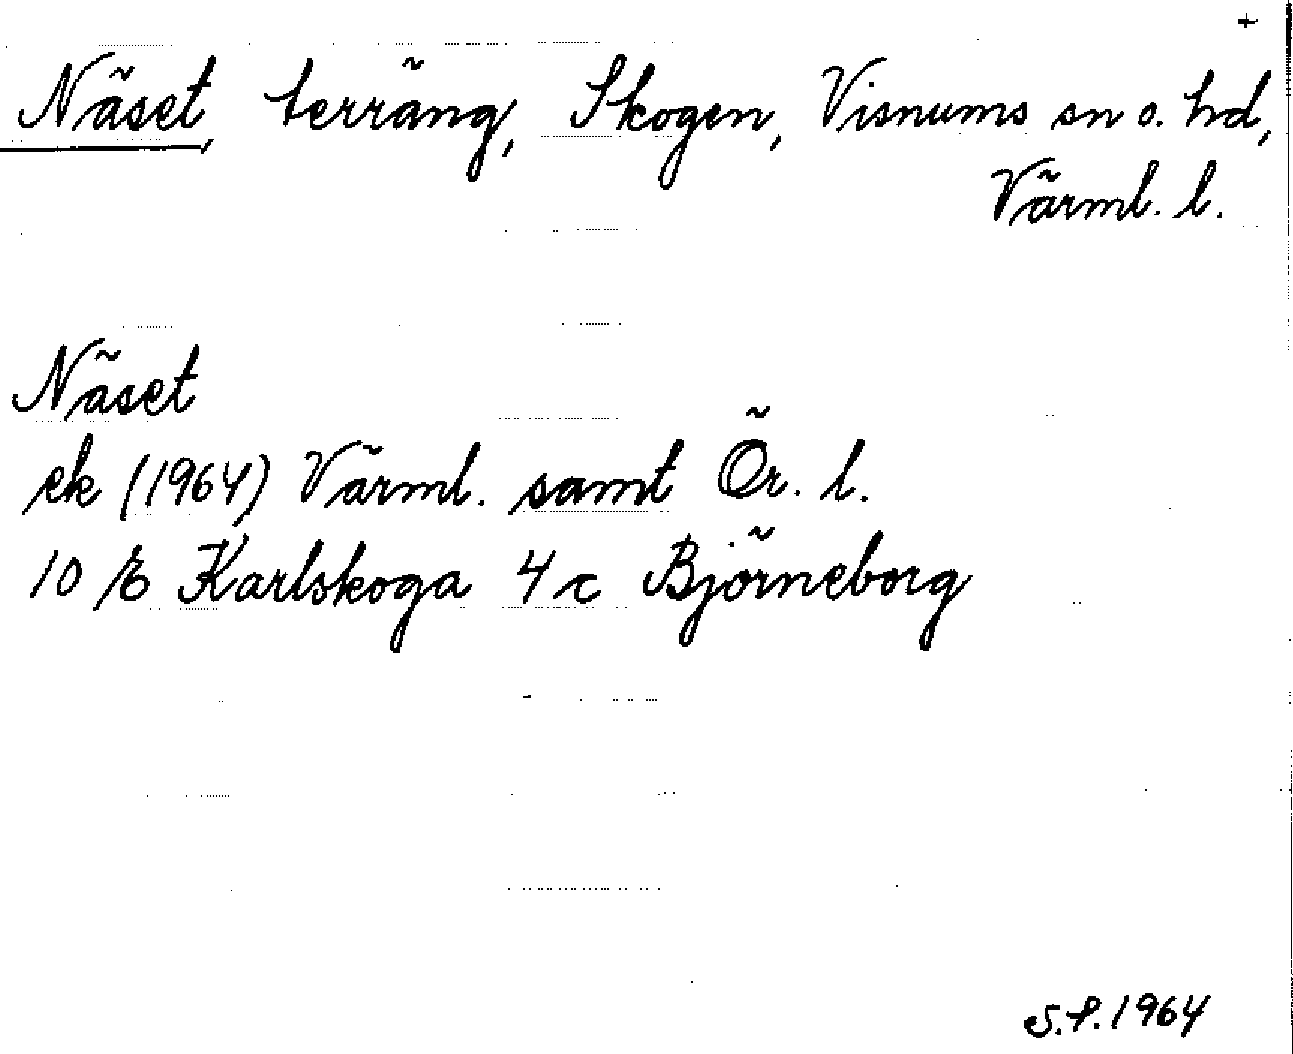 +
Näset, terräng, Skogen, Visnums sn o. hd,
Värml. l.
Näset
ek (1964) Värml. samt Ör. l.
10 E Karlskoga 4 c Björneborg
S.P. 1964